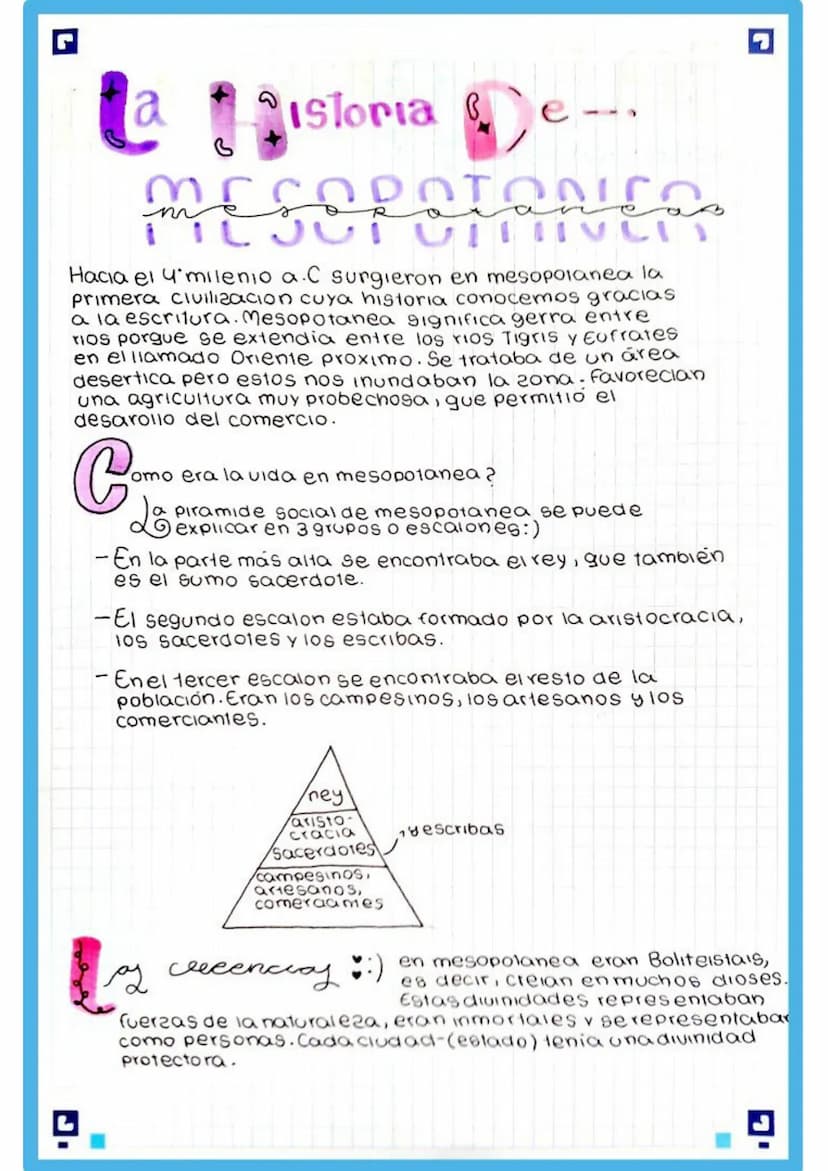 La Historia De---.
mesopotanea
Hacia el 4° milenio a.C surgieron en mesopotanea la
primera civilizacion cuya historia conocemos gracias
a la escritura. Mesopotanea significa gerra entre
rios porque se extendia entre los rios Tigris y Eufrates
en el llamado Oriente proximo. Se trataba de un área
desertica pero estos nos inundaban la zona. Favorecian
una agricultura muy probechosa, que permitió el
desarollo del comercio.
Como era la vida en mesopotanea?
La piramide social de mesopotanea se puede
explicar en 3 grupos o escalones:)
- En la parte más alta se encontraba el rey, que también
es el sumo sacerdote.
- El segundo escalon estaba formado por la aristocracia,
los sacerdotes y los escribas.
- En el tercer escalon se encontraba el resto de la
población. Eran los campesinos, los artesanos y los
comerciantes.
rey
aristo-
cracia
sacerdotes
y escribas
campesinos,
artesanos,
comerciantes
Las creencias :) en mesopotanea eran Boliteistais,
es decir, creian en muchos dioses.
Estas divinidades representaban
fuerzas de la naturaleza, eran inmortales y se representaban
como personas. Cada ciudad-(estado) tenia una divinidad
protectora.